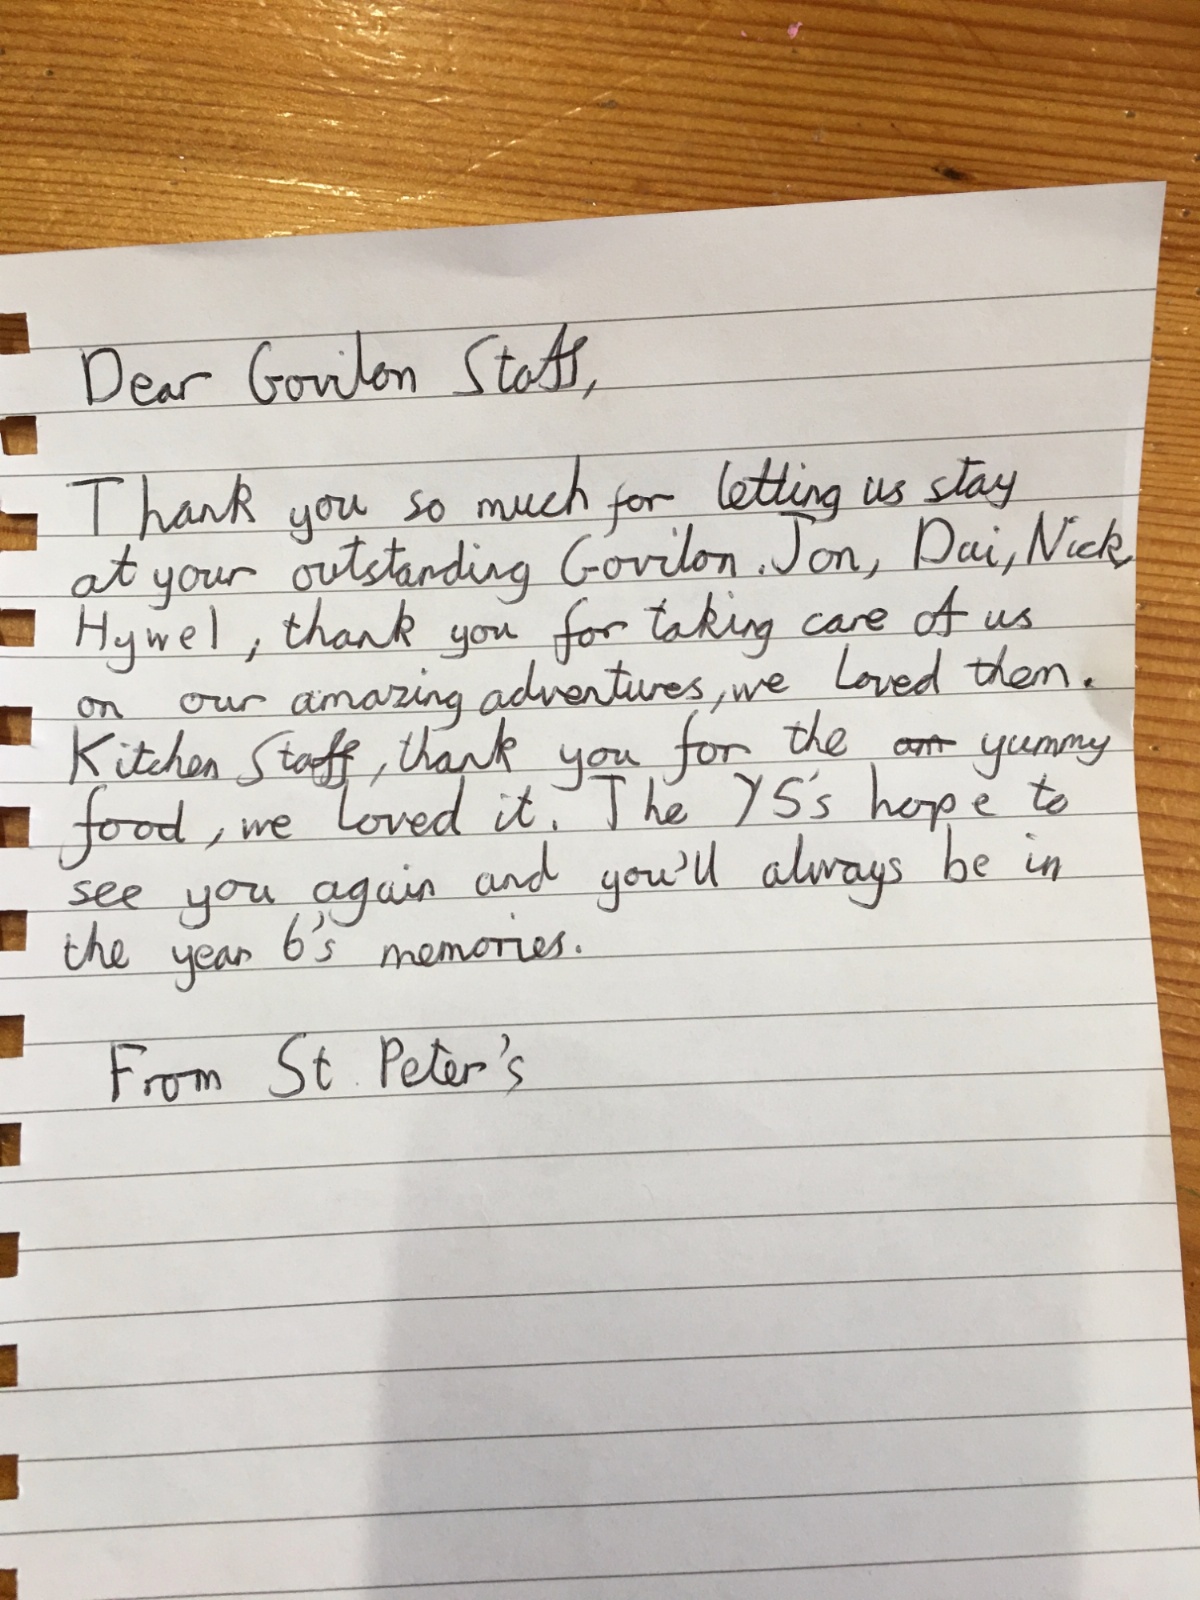 Dear Govilon Staff,
Thank you so much for letting us stay
at your outstanding Govilon. Jon, Dai, Nick,
Hywel, thank you for taking care of us
on our amazing adventures, we loved them.
Kitchen Staff, thank you for the yummy
food, we loved it. The Y5's hope to
see you again and you'll always be in
the year 6's memories.
From St Peter's